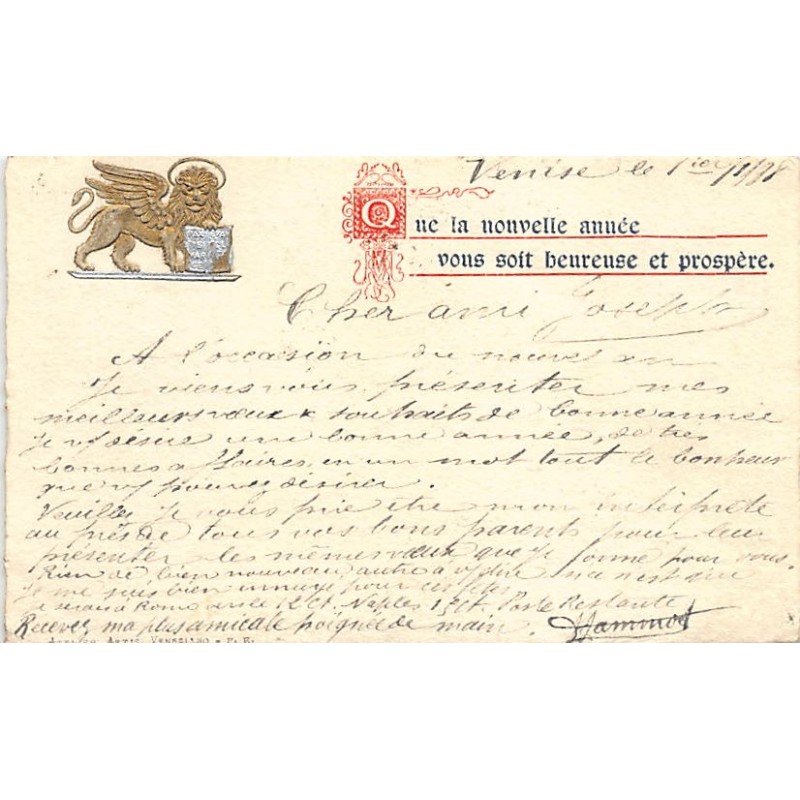 Venise le 1er/1/98
Que la nouvelle année
vous soit heureuse et prospère.
Cher ami Joseph
A l'occasion du nouvel an
Je viens vous présenter mes
meilleurs vœux & souhaits de bonne année
Je vs désire une bonne année, de très
bonnes affaires, en un mot tout le bonheur
que vs pouvez désirer.
Veuillez je vous prie être mon interprète
auprès de tous vos bons parents pour leur
présenter les mêmes vœux que je forme pour vous.
Rien de bien nouveau, autre à vs dire si ce n'est que
Je me suis bien ennuyé pour ces fêtes
Je serai à Rome vers le 12 Ct. Naples 15 Ct. Poste Restante
Recevez ma plus amicale poignée de main.